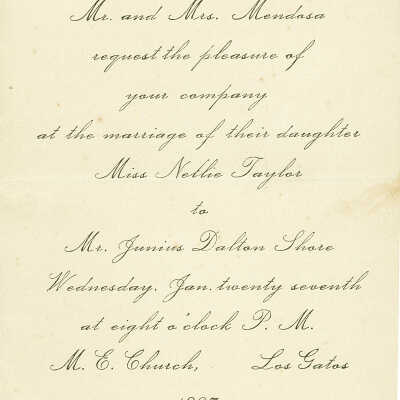 Mr. and Mrs. Mendosa
request the pleasure of
your company
at the marriage of their daughter
Miss Nellie Taylor
to
Mr. Junius Dalton Shore
Wednesday. Jan. twenty seventh
at eight o'clock P. M.
M. E. Church, Los Gatos